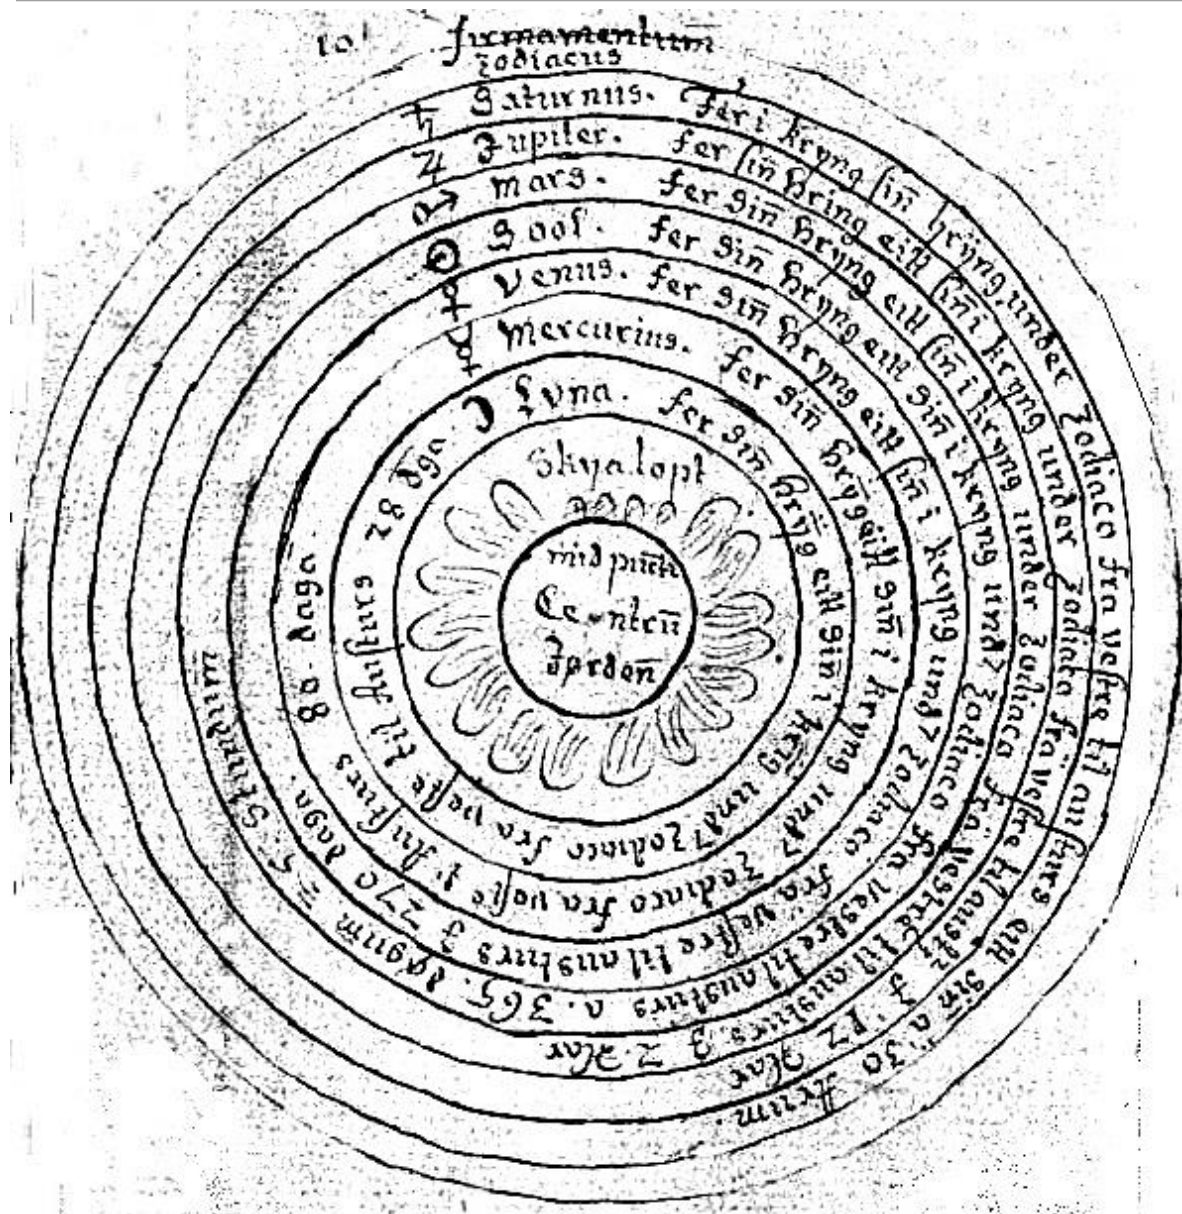 101
firmamentum̄
Zodiacus
♄ Saturnus. Fer i kryng sin̄ hryng under Zodiaco fra vestre til austurs eitt Sin̄ a 30 Arum.
♃ Jupiter. fer sin̄ hring eitt sin̄ i kryng under Zodiaco fra vestre til austz J 12 Aar
♂ Mars. fer Sin̄ hryng eitt sin̄ i kryng under Zodiaco fra vestre til austurs J 2 Aar
☉ Sool. fer Sin̄ hryng eitt Sin̄ i kryng und Zodiaco fra vestre til austurs a. 365. dagum̄ = 5. Stundum̄
♀ Venus. fer Sin̄ hryng eitt sin̄ i kryng und Zodiaco fra vestre til austurs J 270 daga.
☿ Mercurius. fer Sin̄ hryg eitt Sin̄ i kryng und Zodiaco fra veste t' Austurs 80. daga.
☽ Lvna. fer Sin̄ hryg eitt Sin i kryg und Zodiaco fra veste til Austurs 28 dga
Skya.lopt
mid pun̄ti
Ce-ntrū
Jorden̄